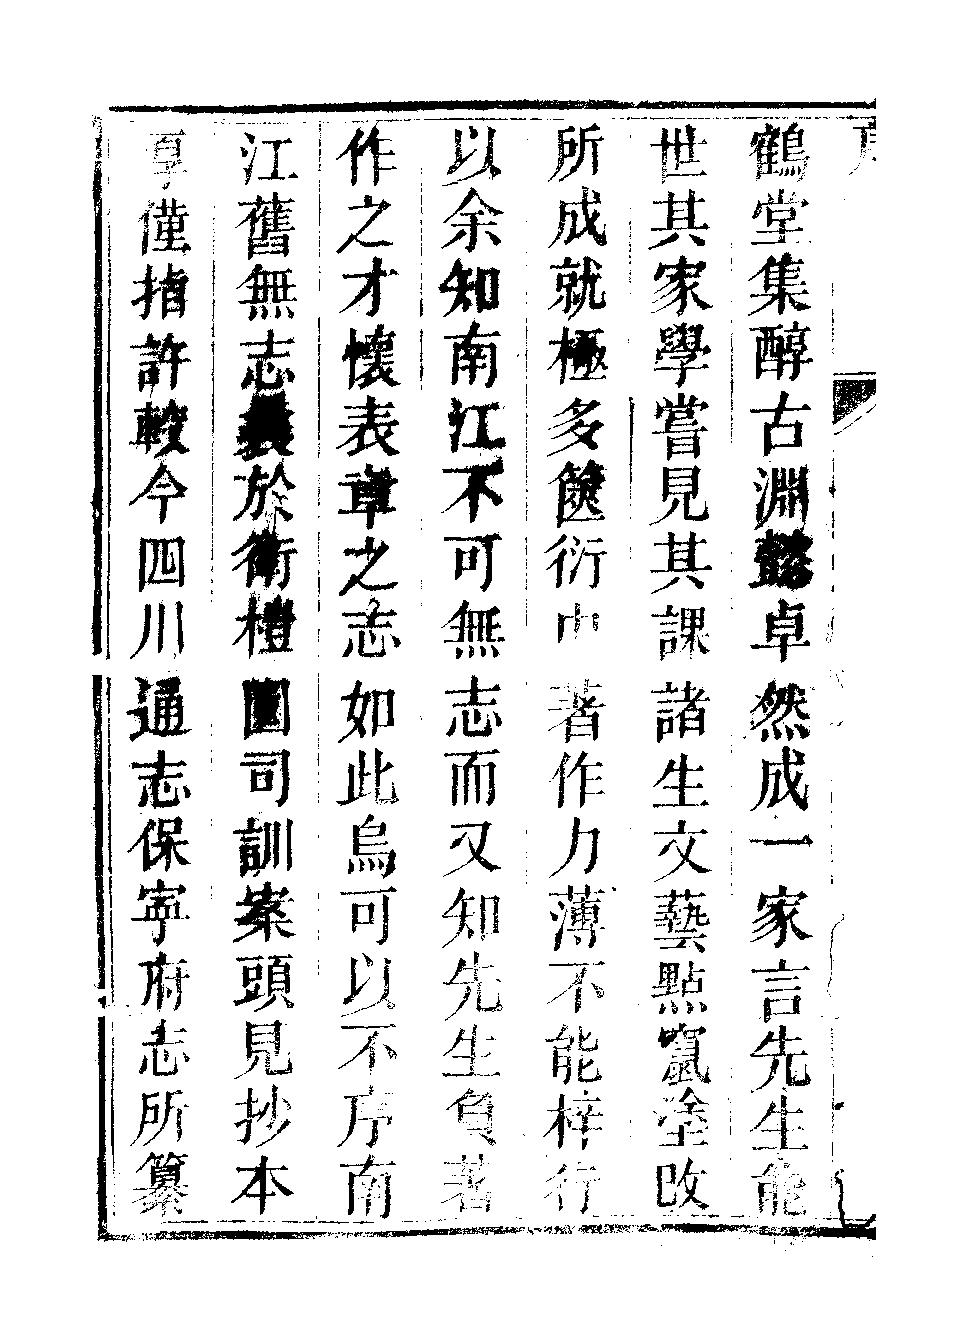 鶴堂集醇古淵懿卓然成一家言先生能
世其家學嘗見其課諸生文藝點竄塗改
所成就極多篋衍中著作力薄不能梓行
以余知南江不可無志而又知先生負著
作之才懷表章之志如此烏可以不序南
江舊無志曩於衛櫃園司訓案頭見抄本
草僅指許較今四川通志保寧府志所纂